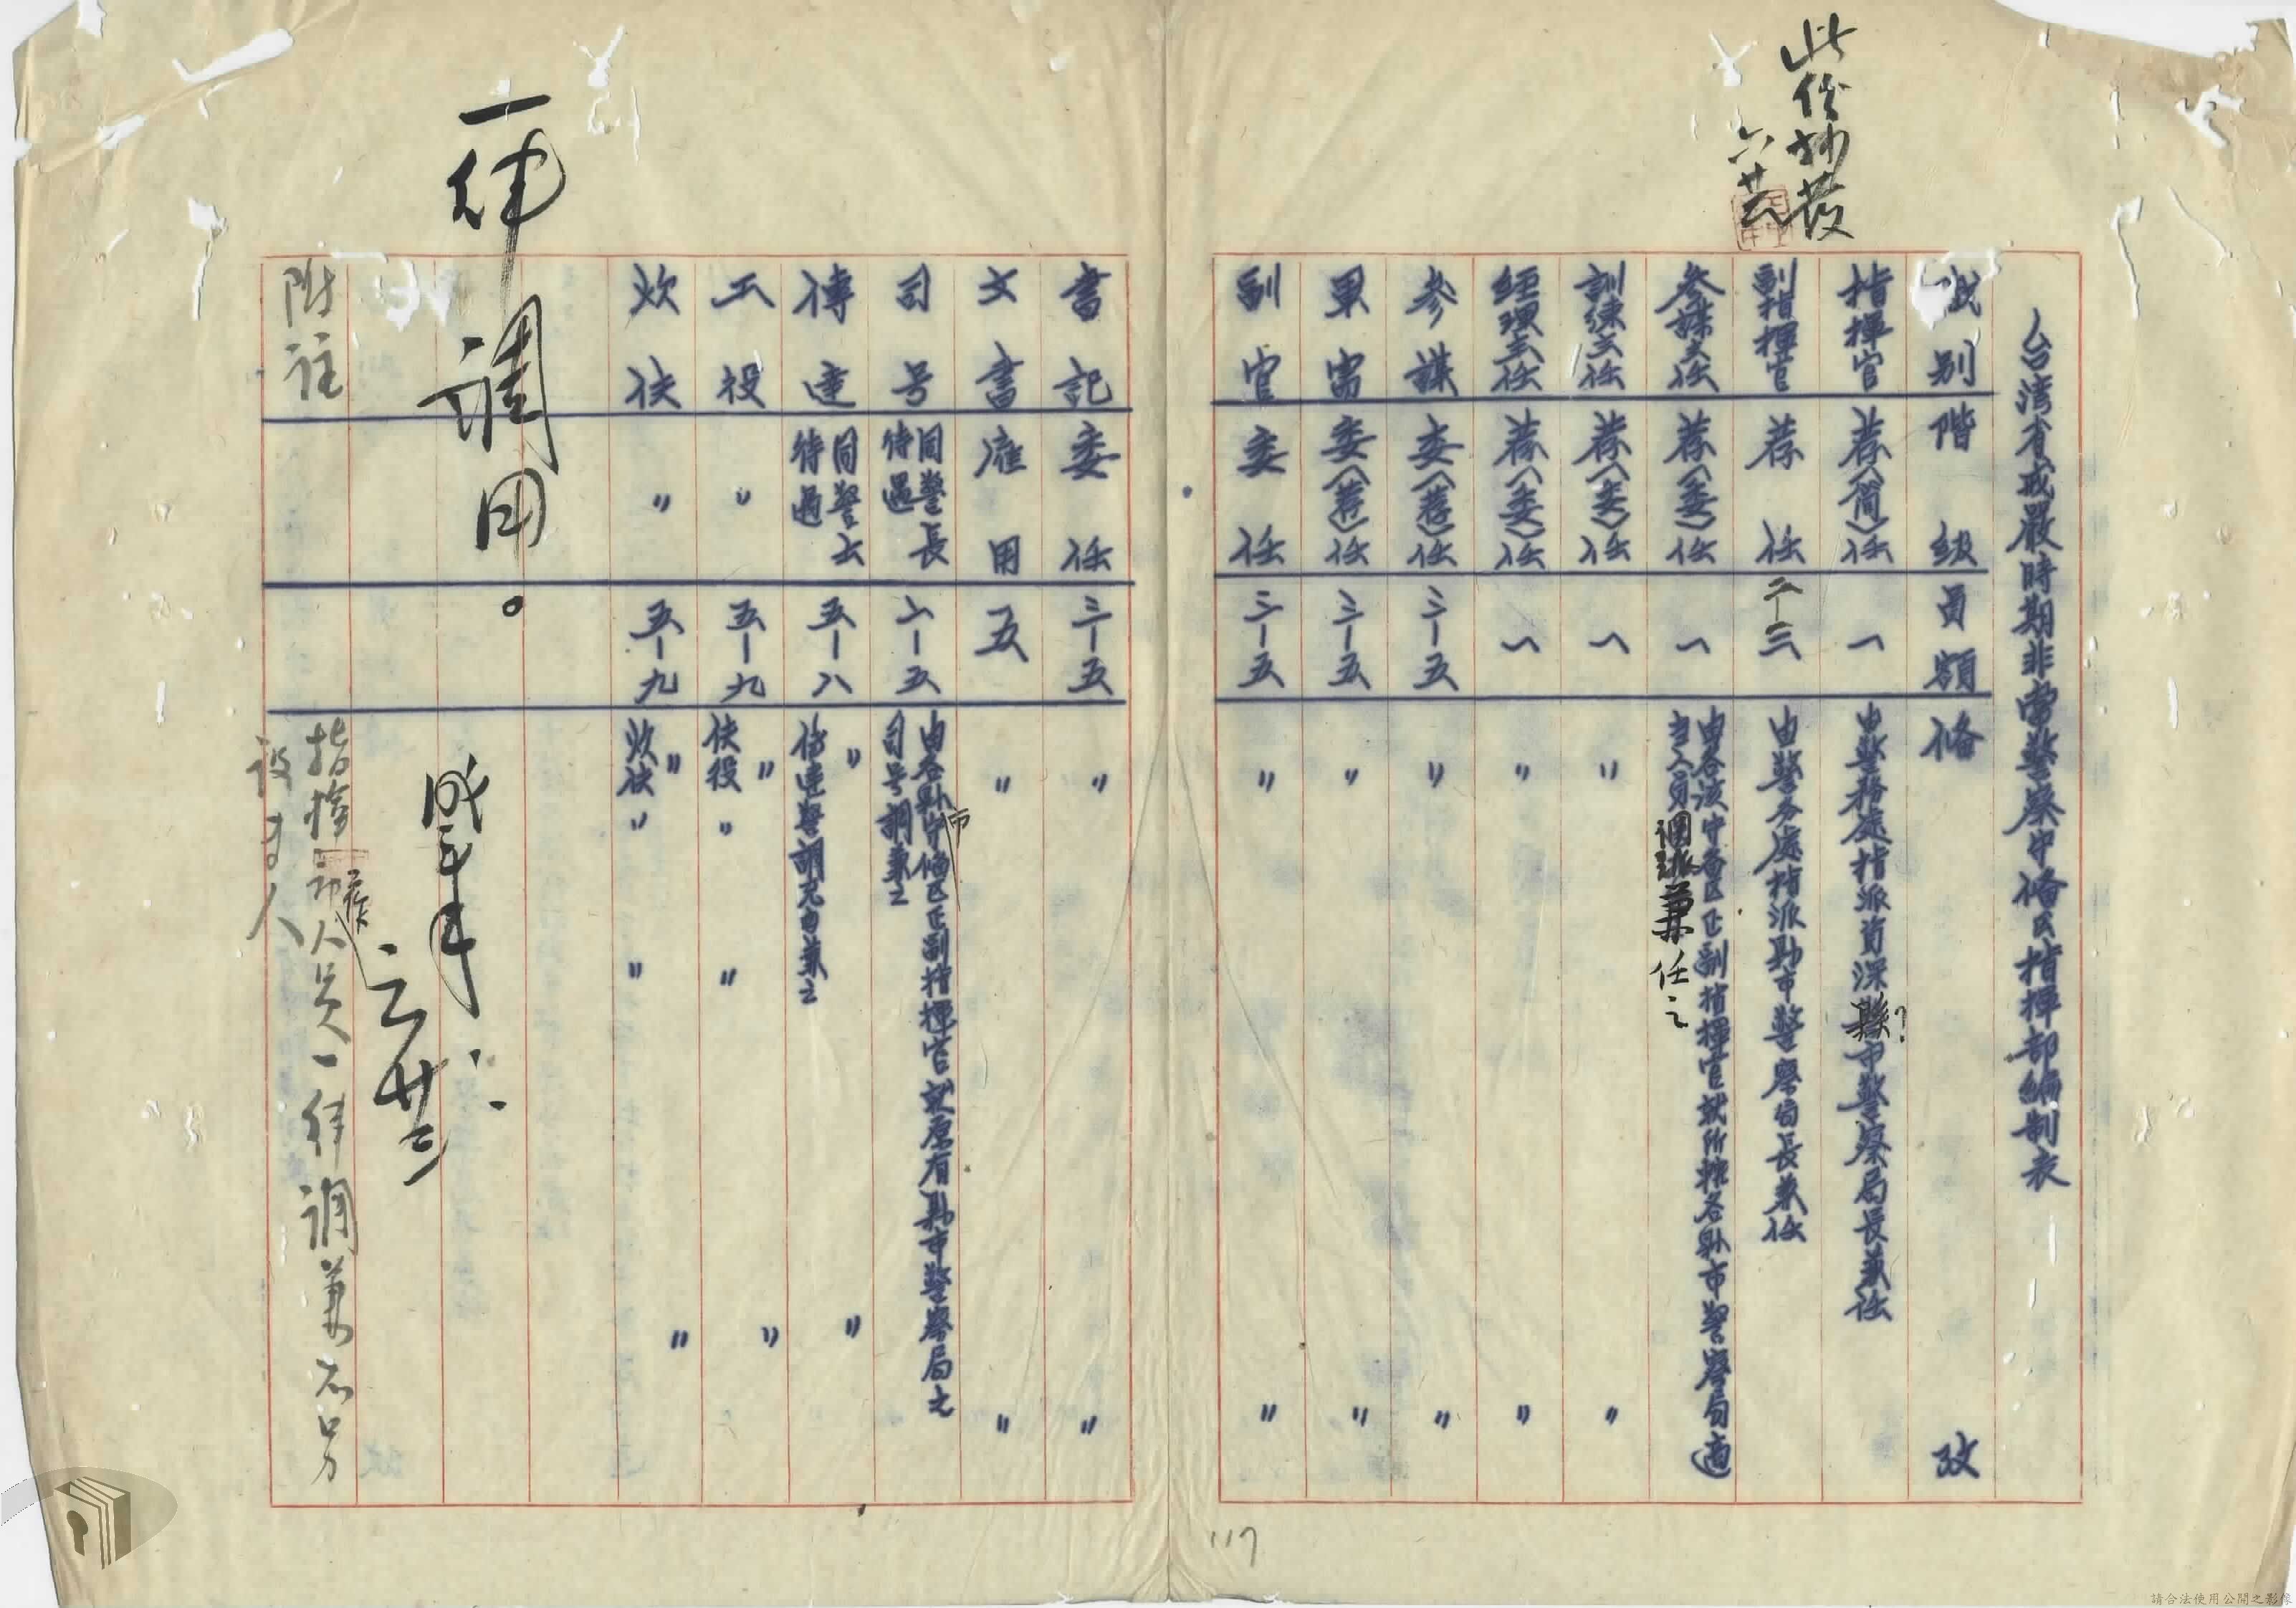 此份抄發
六廿
台湾省戒嚴時期非常警察守俻区指揮部編制表
别 階級 員額 俻攷
指揮官 荐(簡)任 一 由警務處指派資深縣?市警察局長兼任
副指揮官 荐任 二—三 由警务處指派縣市警察局長兼任
参謀主任 荐(委)任 一 由各該守备区正副指揮官就所轄各縣市警察局適
当人員調派兼任之
訓練主任 荐(委)任 一 〃 〃
經理主任 荐(委)任 一 〃 〃
参謀 委(荐)任 三—五 〃 〃
軍需 委(荐)任 三—五 〃 〃
副官 委任 三—五 〃 〃
書記 委任 三—五 〃 〃
文書 雇用 五 〃 〃
司号 同警長待遇 二—五 由各縣市守俻区正副指揮官就原有縣市警察局之
司号調兼之
傳達 同警士待遇 五—八 〃 〃
傳達警調充兼之
工役 〃 五—九 〃 〃
伕役 〃 〃
炊伕 〃 五—九 〃 〃
炊伕 〃 〃
一律調用。
六廿三
附註
指揮部人員一律調兼不另
設专人
117
請合法使用公開之影像